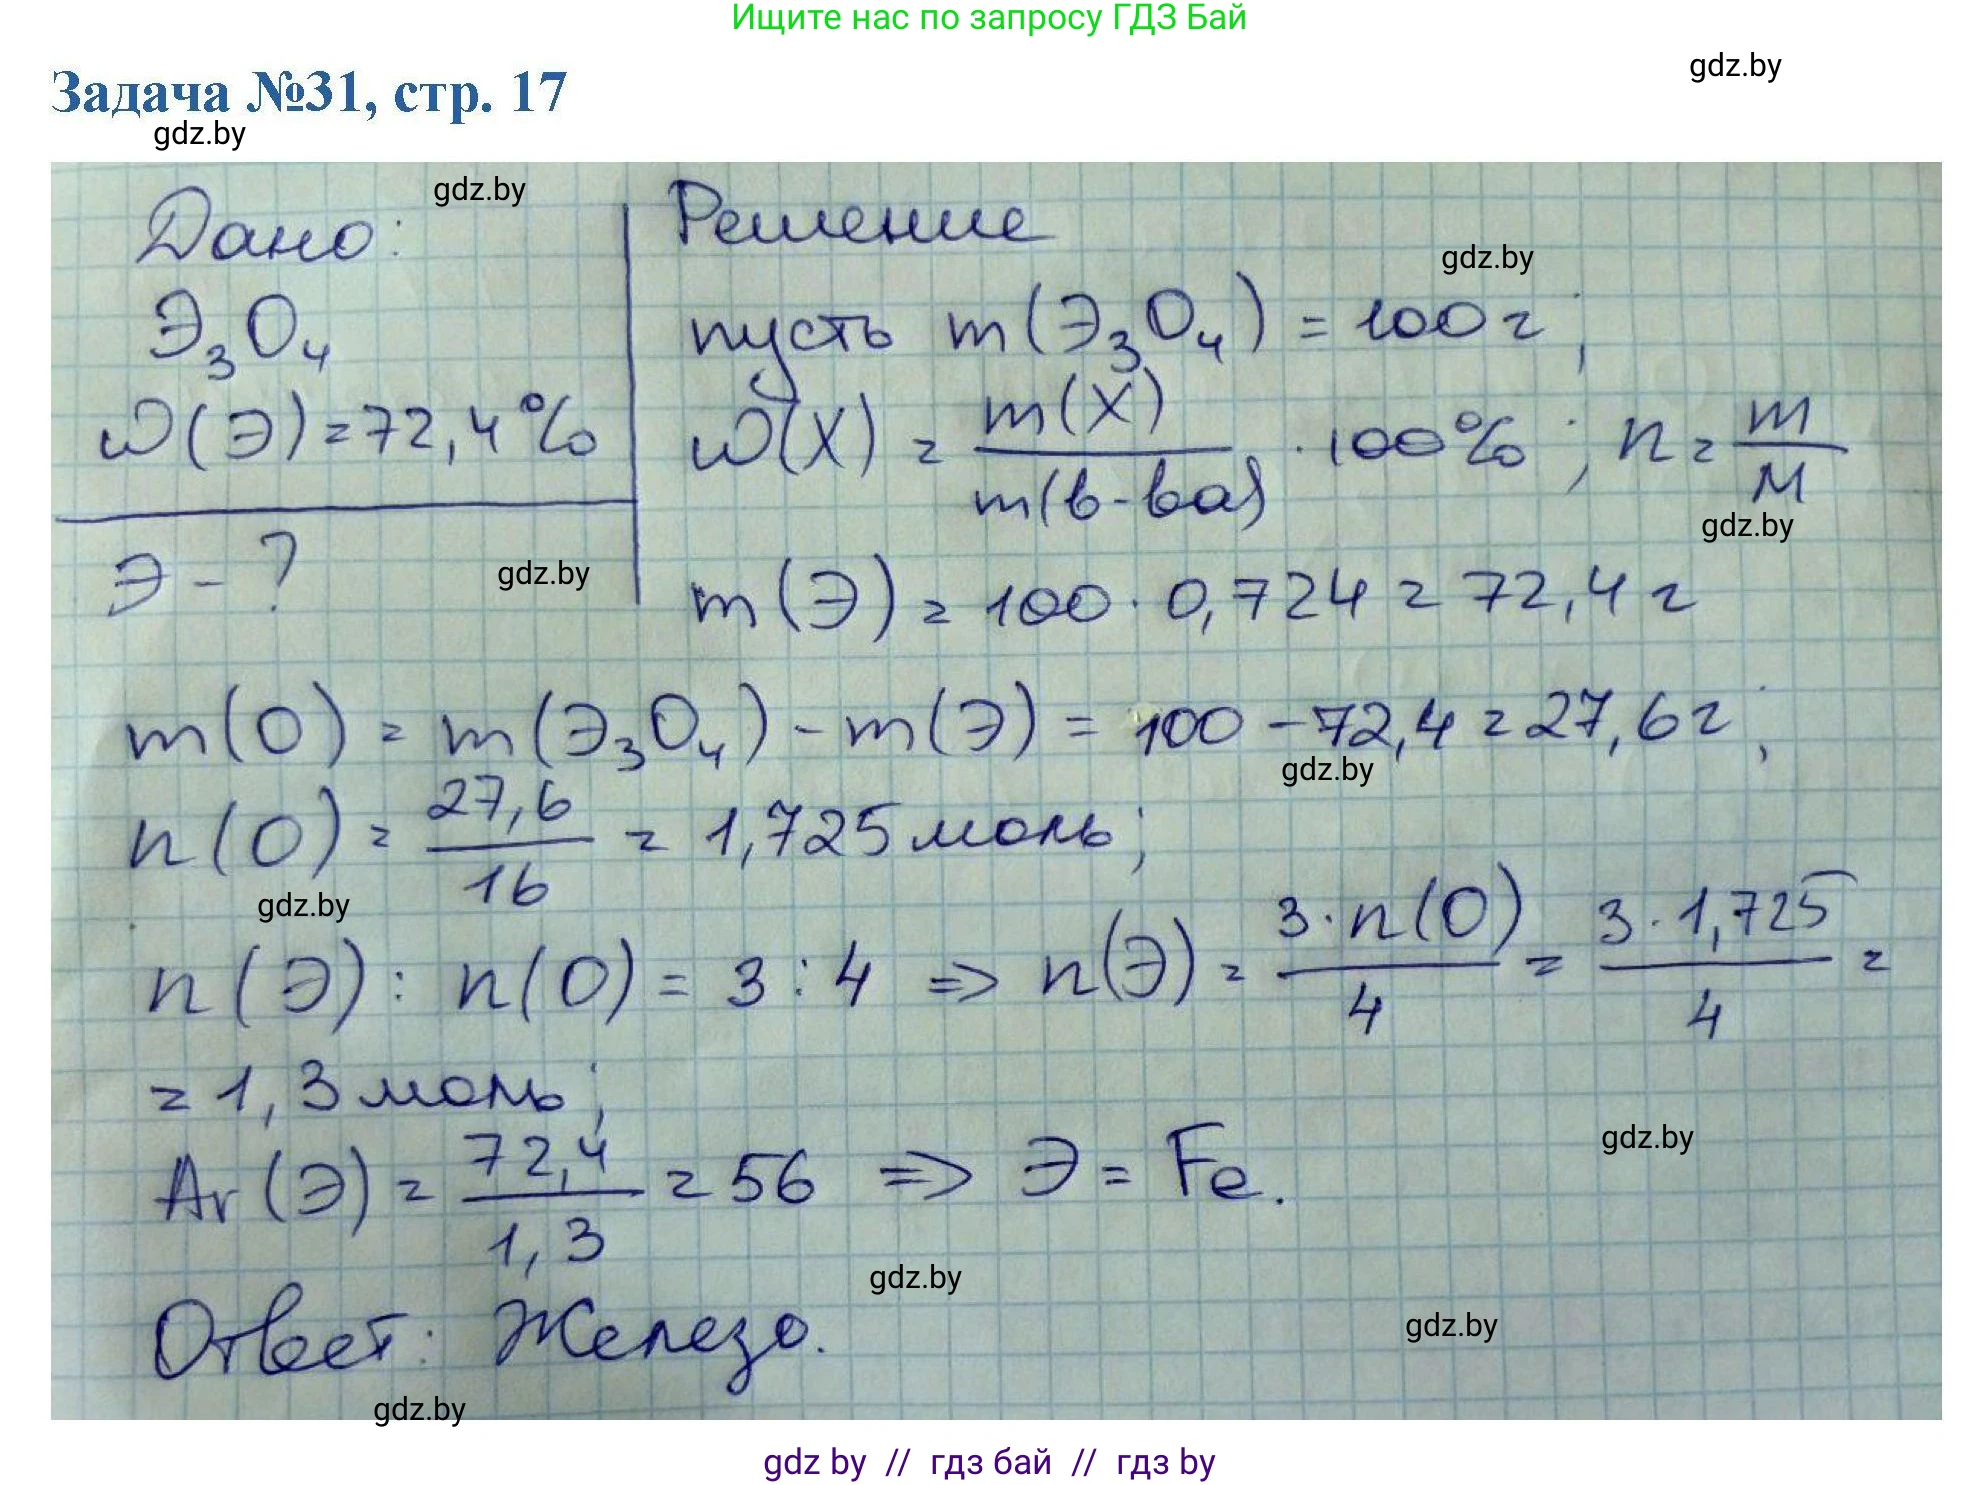 Ищите нас по запросу ГДЗ Бай
gdz.by
Задача №31, стр. 17
gdz.by
Дано:
gdz.by
Э₃O₄
W(Э)=72,4%
Э-?
gdz.by
Решение
gdz.by
пусть m(Э₃O₄) = 100г;
W(X) = m(X)/m(в-ва) · 100%; n = m/M
gdz.by
m(Э) = 100 · 0,724 = 72,4 г
m(O) = m(Э₃O₄) - m(Э) = 100 - 72,4 = 27,6г;
gdz.by
n(O) = 27,6/16 = 1,725 моль;
gdz.by
n(Э) : n(O) = 3 : 4 => n(Э) = 3·n(O)/4 = 3·1,725/4 =
= 1,3 моль;
gdz.by
Ar(Э) = 72,4/1,3 = 56 => Э = Fe.
gdz.by
Ответ: Железо.
gdz.by
gdz.by
gdz by // гдз бай // гдз by